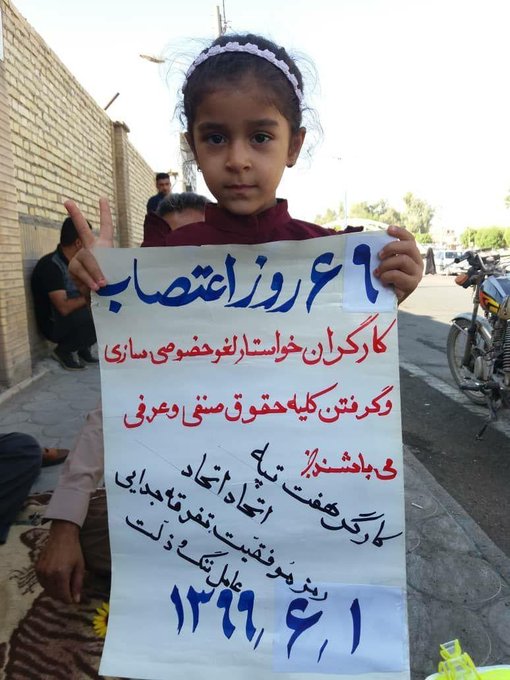 ۶۹ روز اعتصاب
کارگران خواستار لغو خصوصی سازی
و گرفتن کلیه حقوق صنفی و عرفی
می باشند
کارگر هفت تپه
اتحاد اتحاد
رمز موفقیت تفرقه جدایی
عامل ننگ و ذلت
۱۳۹۹,۶,۱